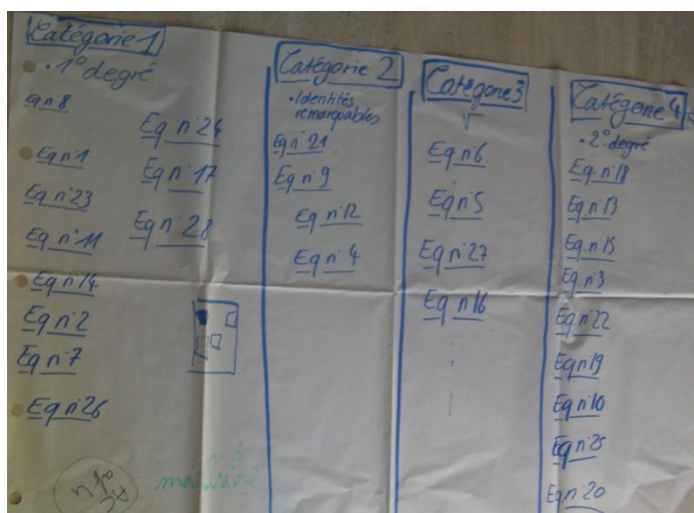 Catégorie 1
• 1° degré
Eq n°8
Eq n°1
Eq n°23
Eq n°11
Eq n°14
Eq n°2
Eq n°7
Eq n°26
Eq n°24
Eq n°17
Eq n°28
Catégorie 2
• Identités
remarquables
Eq n°21
Eq n°9
Eq n°12
Eq n°4
Catégorie 3
√
Eq n°6
Eq n°5
Eq n°27
Eq n°16
Catégorie 4
• 2° degré
Eq n°18
Eq n°13
Eq n°15
Eq n°3
Eq n°22
Eq n°19
Eq n°10
Eq n°25
Eq n°20